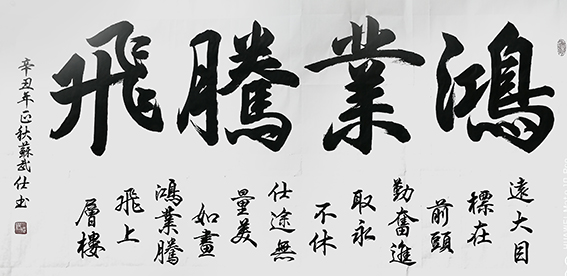 鴻業騰飛
遠大目
標在
前頭
勤奮進
取永
不休
仕途無
量美
如畫
鴻業騰
飛上
層樓
辛丑年正秋蘇武仕书